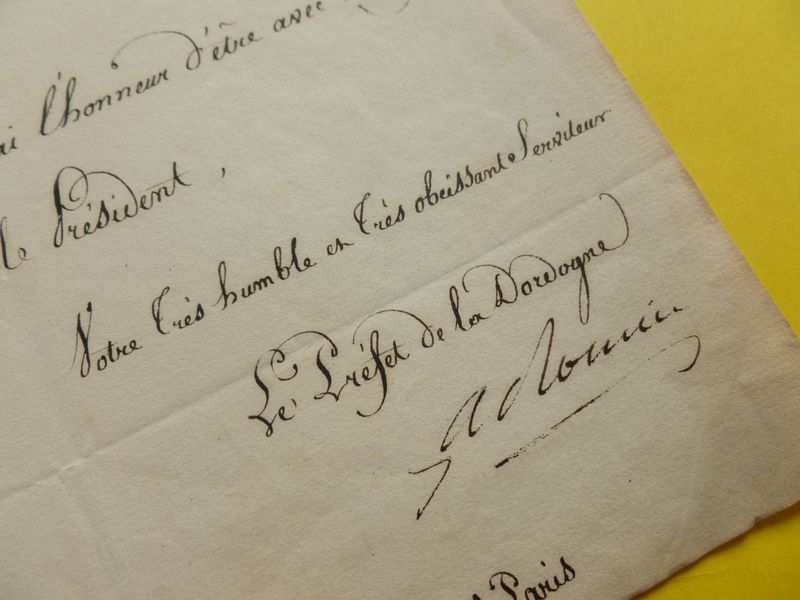 l'honneur d'être avec
le Président,
Votre très humble et très obeissant Serviteur
Le Préfet de la Dordogne
ARomieu
Paris